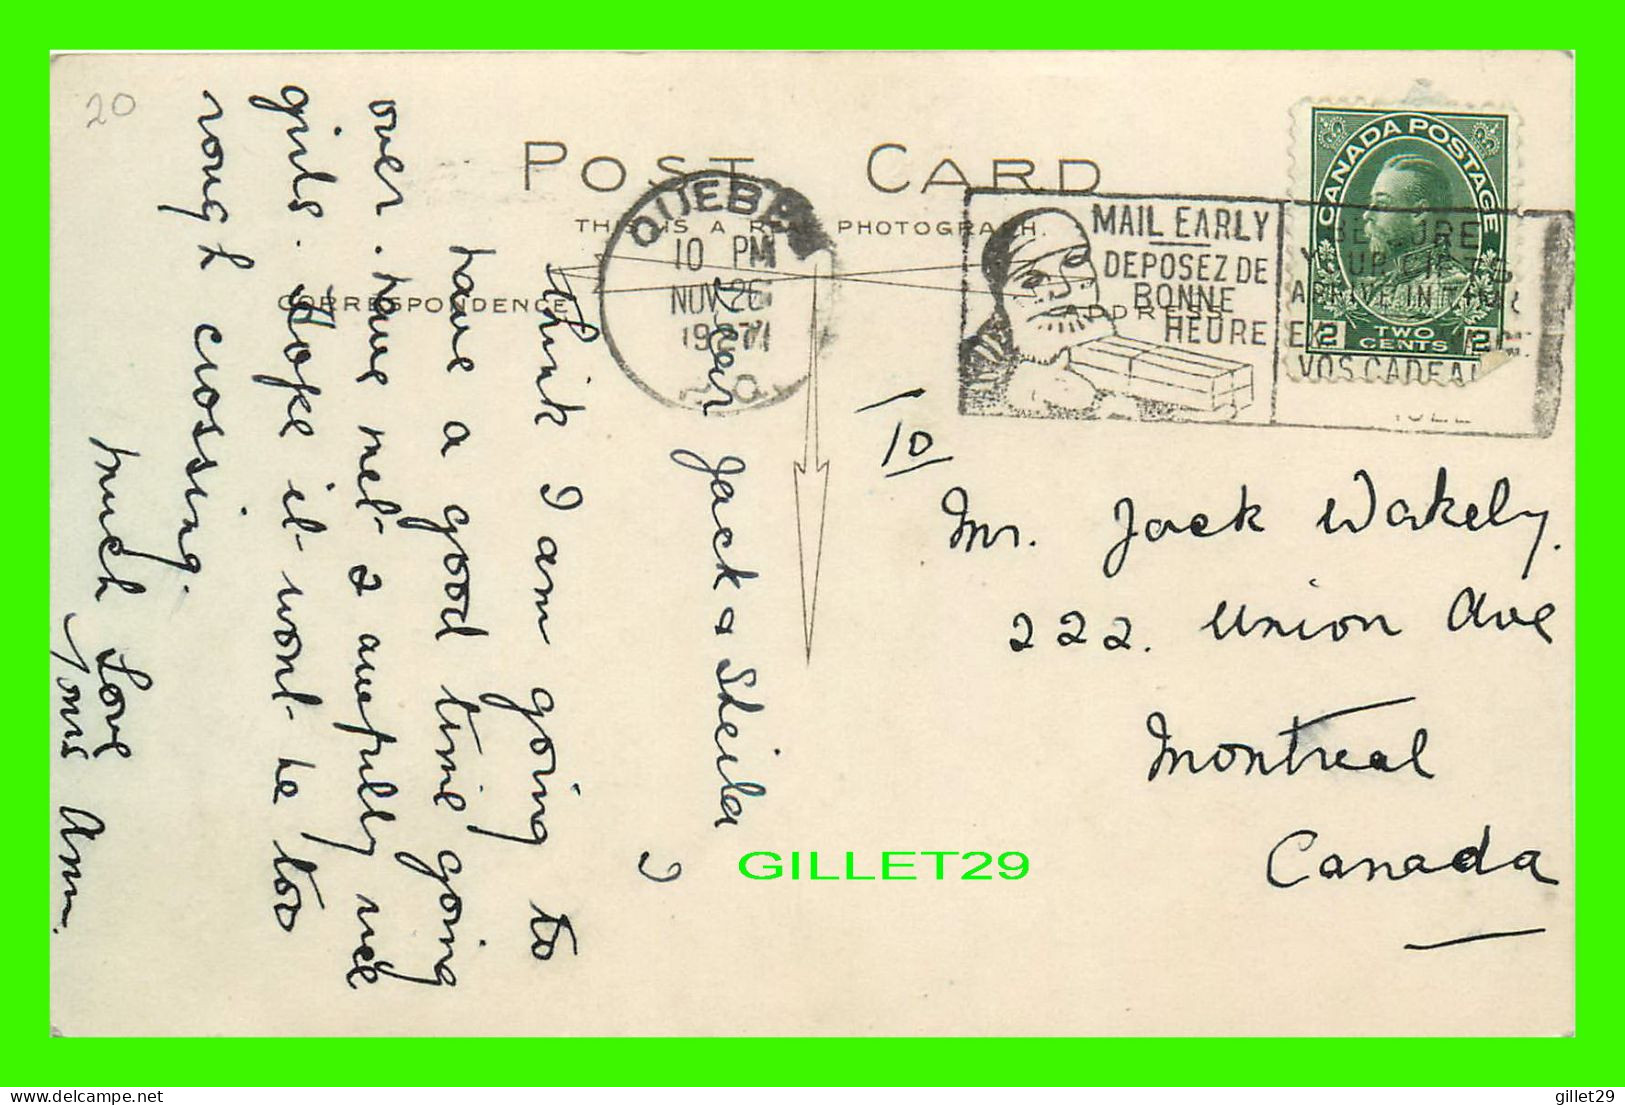 20
POST CARD
THIS IS A REAL PHOTOGRAPH.
CORRESPONDENCE
ADDRESS
QUEBEC
10 PM
NOV 26
P.Q.
MAIL EARLY
DEPOSEZ DE
BONNE
HEURE
BE SURE
YOUR GIFTS
ARRIVE IN TIME
VOS CADEAU
CANADA POSTAGE
2 TWO CENTS 2
Dear Jack & Sheila
I
think I am going to
have a good time going
over. have met 2 awfully nice
girls. Hope it wont be too
rough crossing.
much Love
Yours Ann.
To
Mr. Jack Wakely.
222. Union Ave
Montreal
Canada
GILLET29
delcampe.net
gillet29